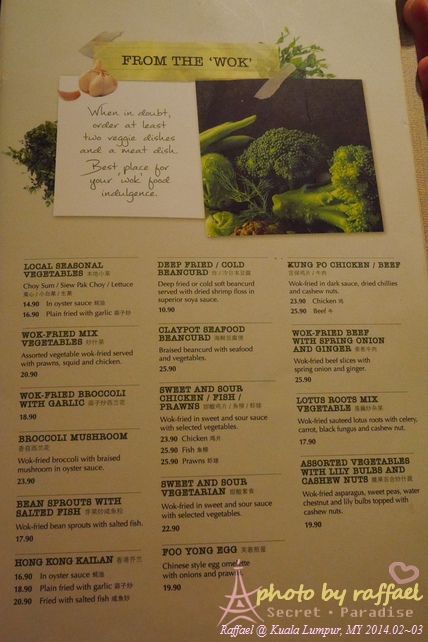 FROM THE 'WOK'
When in doubt,
order at least
two veggie dishes
and a meat dish.
Best, place for
your 'wok' food
indulgence.
LOCAL SEASONAL
VEGETABLES 本地小菜
Choy Sum / Siew Pak Choy / Lettuce
菜心 / 小白菜 / 生菜
14.90 In oyster sauce 蚝油
16.90 Plain fried with garlic 蒜子炒
WOK-FRIED MIX
VEGETABLES 炒什菜
Assorted vegetable wok-fried served
with prawns, squid and chicken.
20.90
WOK-FRIED BROCCOLI
WITH GARLIC 蒜子炒西兰花
18.90
BROCCOLI MUSHROOM
香菇西兰花
Wok-fried broccoli with braised
mushroom in oyster sauce.
23.90
BEAN SPROUTS WITH
SALTED FISH 芽菜炒咸鱼粒
Wok-fried bean sprouts with salted fish.
17.90
HONG KONG KAILAN 香港芥兰
16.90 In oyster sauce 蚝油
18.90 Plain fried with garlic 蒜子炒
20.90 Fried with salted fish 咸鱼炒
DEEP FRIED / COLD
BEANCURD
Deep fried or cold soft beancurd
served with dried shrimp floss in
superior soya sauce.
10.90
CLAYPOT SEAFOOD
BEANCURD 海鲜豆腐煲
Braised beancurd with seafood
and vegetables.
25.90
SWEET AND SOUR
CHICKEN / FISH /
PRAWNS 甜酸鸡片 / 鱼柳 / 虾球
Wok-fried in sweet and sour sauce
with selected vegetables.
23.90 Chicken 鸡片
25.90 Fish 鱼柳
25.90 Prawns 虾球
SWEET AND SOUR
VEGETARIAN 甜酸素食
Wok-fried in sweet and sour sauce
with selected vegetables.
22.90
FOO YONG EGG 芙蓉煎蛋
Chinese style egg omelette
with onions and prawns.
19.90
KUNG PO CHICKEN / BEEF
宫保鸡片 / 牛肉
Wok-fried in dark sauce, dried chillies
and cashew nuts.
23.90 Chicken 鸡
25.90 Beef 牛
WOK-FRIED BEEF
WITH SPRING ONION
AND GINGER 姜葱牛肉
Wok-fried beef slices with
spring onion and ginger.
25.90
LOTUS ROOTS MIX
VEGETABLE
Wok-fried sauteed lotus roots with celery,
carrot, black fungus and cashew nut.
17.90
ASSORTED VEGETABLES
WITH LILY BULBS AND
CASHEW NUTS
Wok-fried asparagus, sweet peas, water
chestnut and lily bulbs topped with
cashew nuts.
19.90
photo by raffael
Secret · Paradise
Raffael @ Kuala Lumpur, MY 2014.02~03